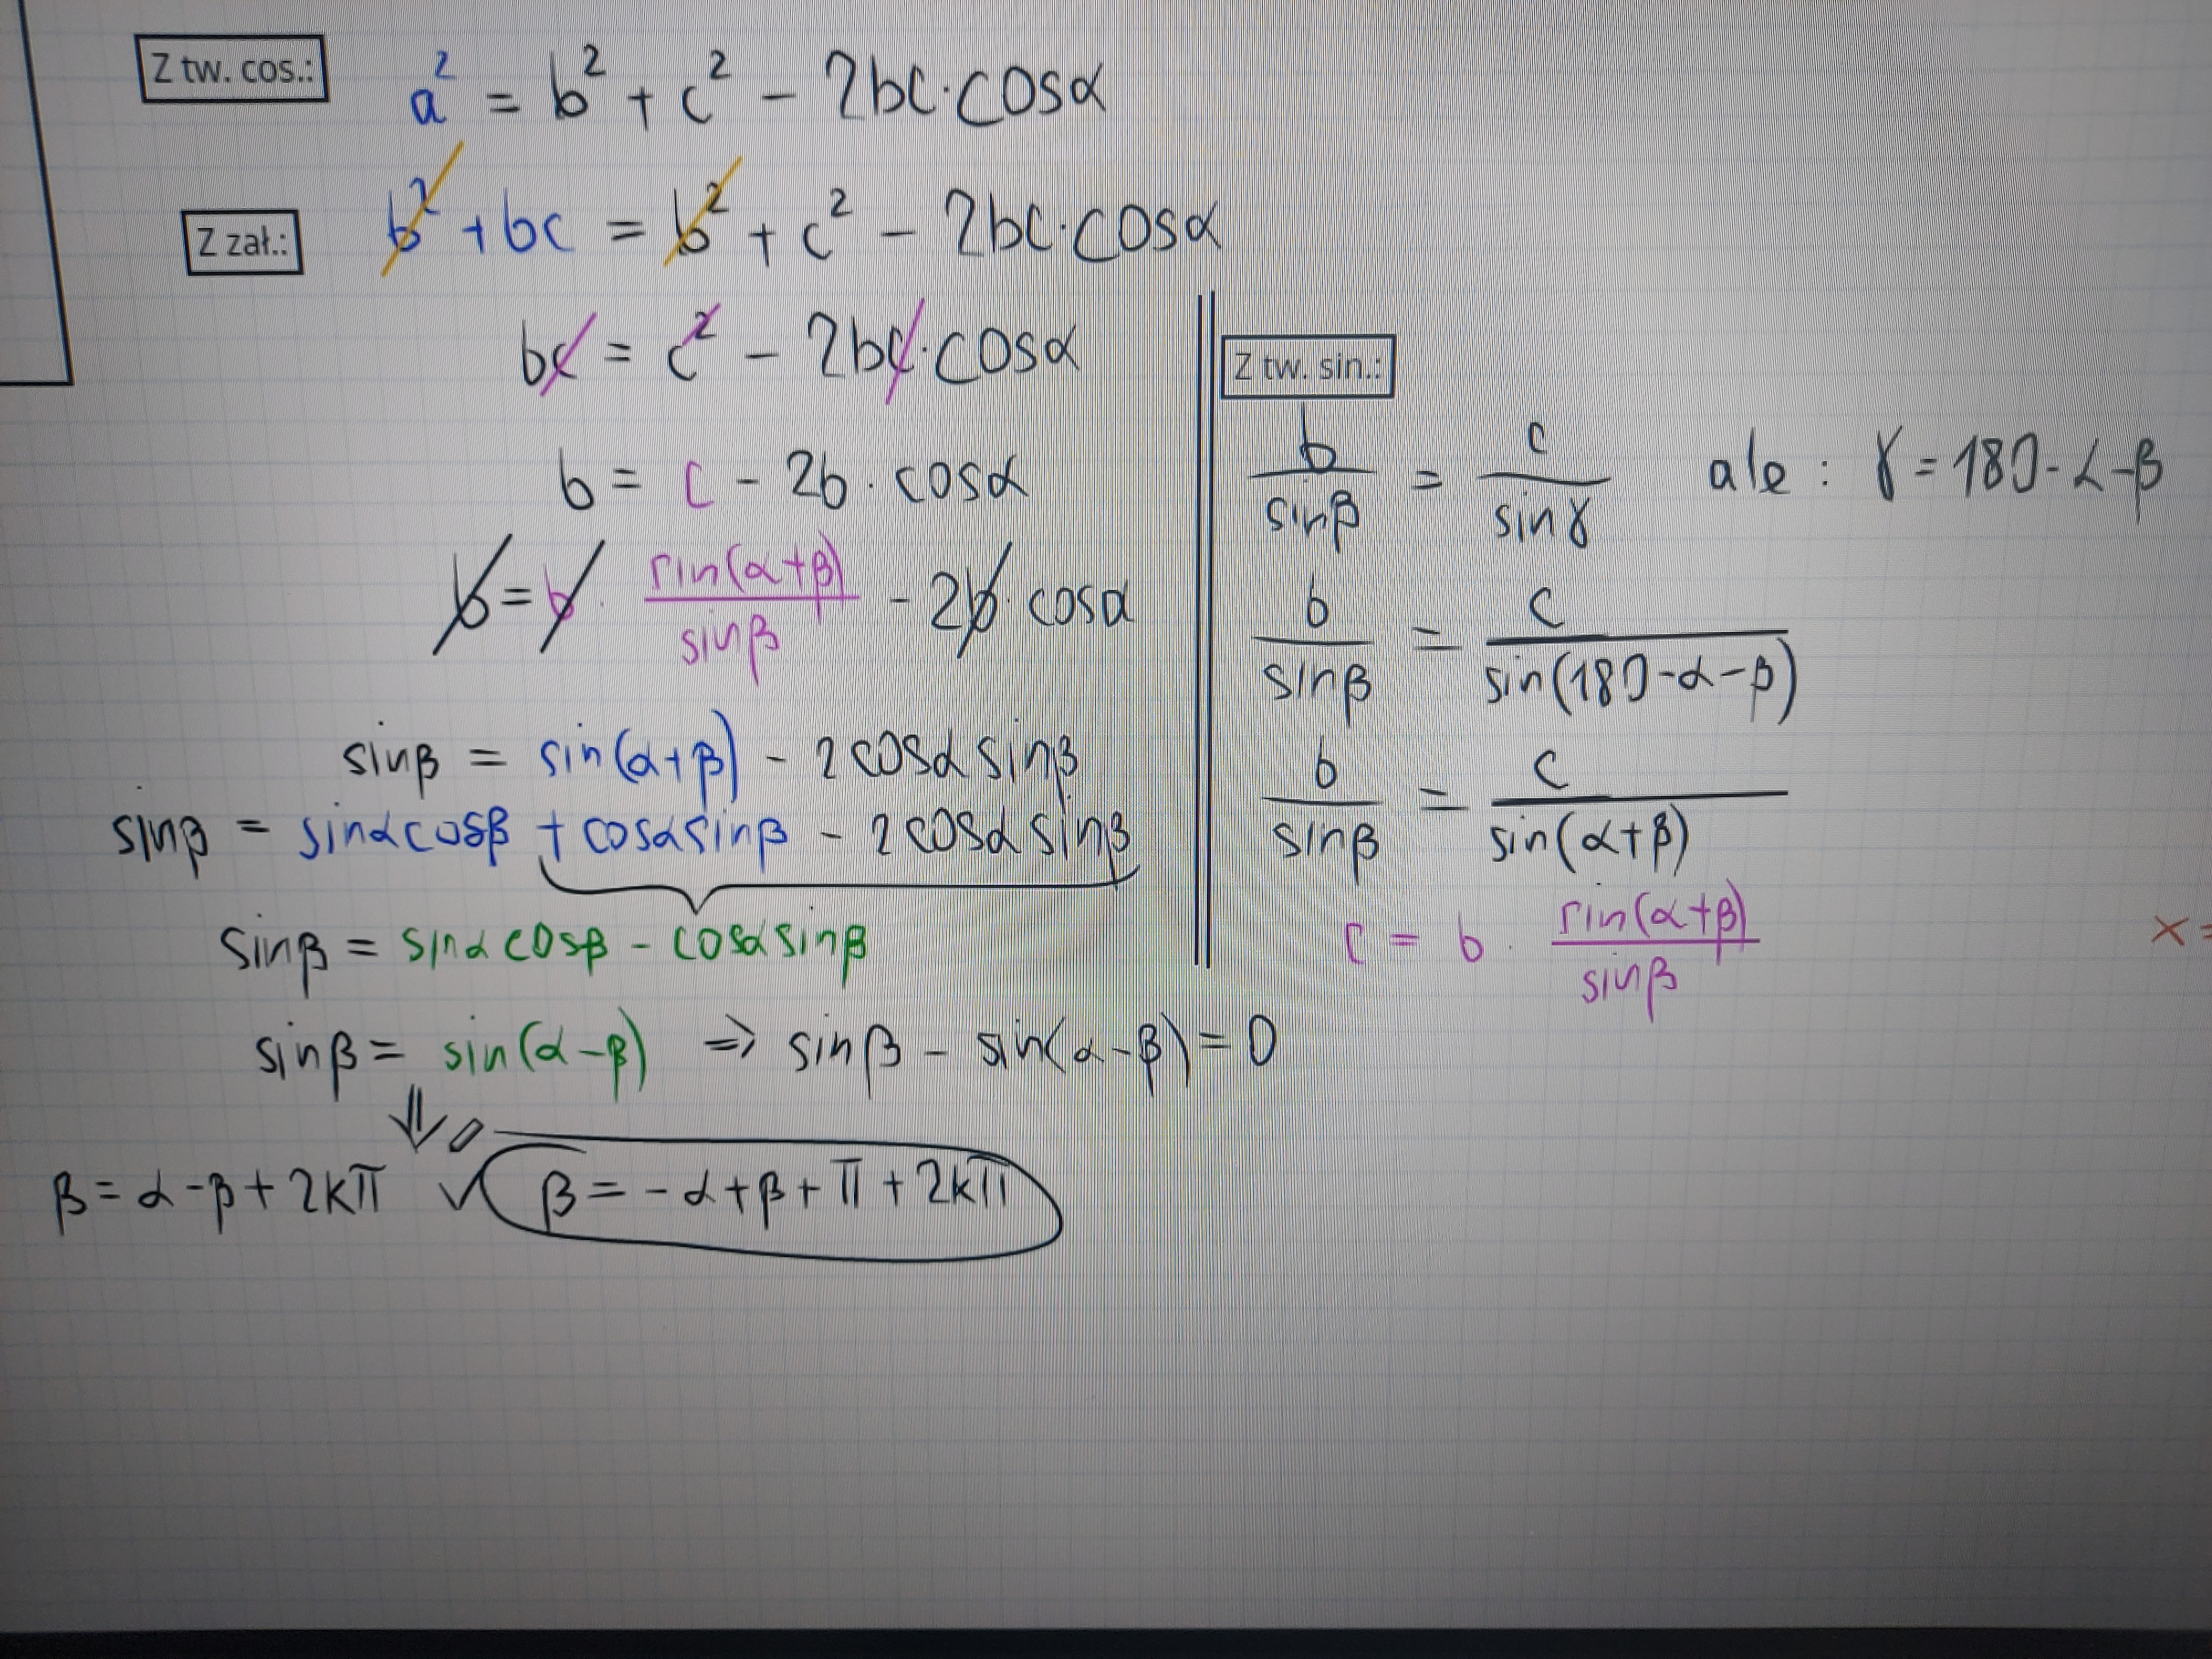 Z tw. cos.: a² = b² + c² - 2bc·cosα
Z zał.: b² + bc = b² + c² - 2bc·cosα
bc = c² - 2bc·cosα
b = c - 2b·cosα
b = b · sin(α+β)/sinβ - 2b·cosα
sinβ = sin(α+β) - 2cosα sinβ
sinβ = sinα cosβ + cosα sinβ - 2cosα sinβ
sinβ = sinα cosβ - cosα sinβ
sinβ = sin(α-β) ⇒ sinβ - sin(α-β) = 0
⇓
β = α-β + 2kπ ∨ β = -α+β+π+2kπ
Z tw. sin.:
b/sinβ = c/sinγ ale: γ = 180-α-β
b/sinβ = c/sin(180-α-β)
b/sinβ = c/sin(α+β)
c = b · sin(α+β)/sinβ
x=